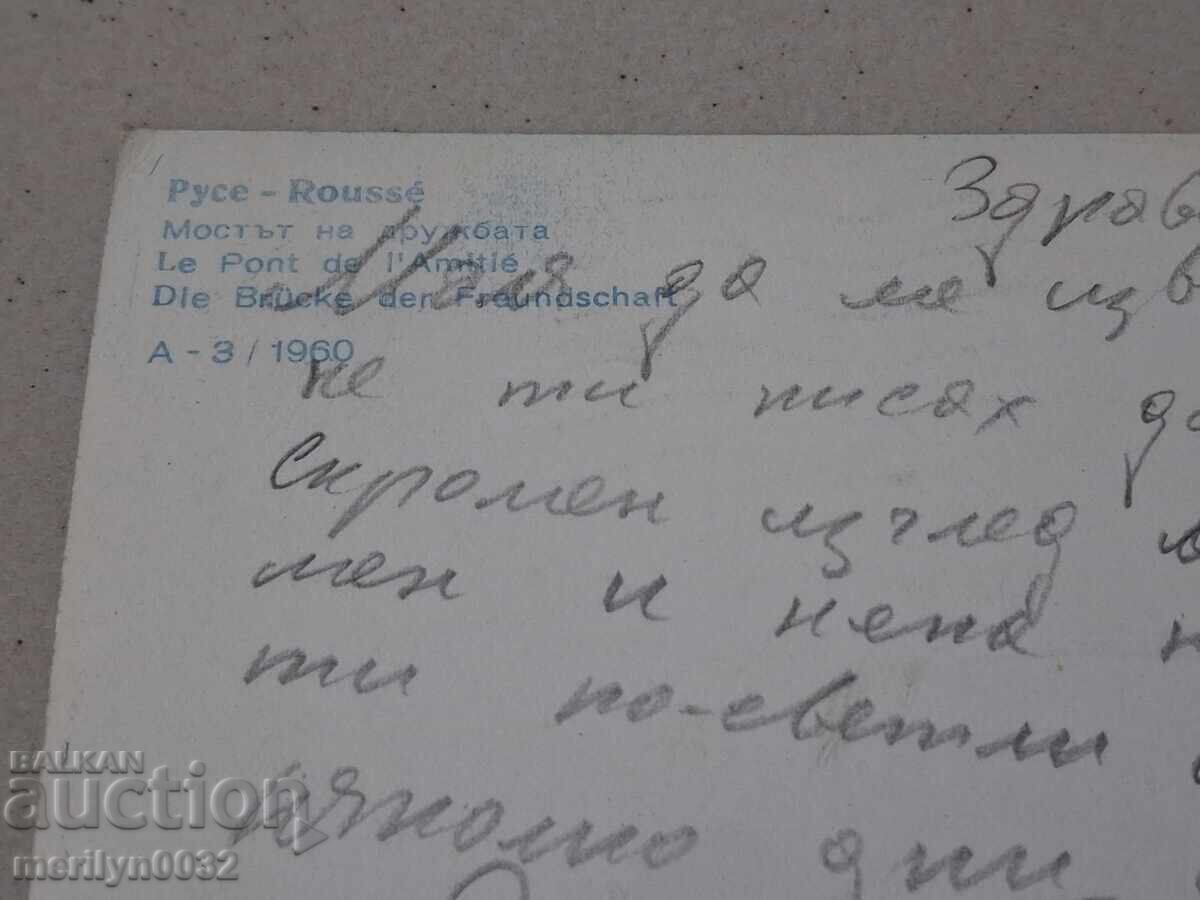 Русе - Roussé
Мостът на дружбата
Le Pont de l'Amitié
Die Brücke der Freundschaft
А - 3 / 1960
Здрав
Моля да ме изв
не ти писах
Скромен изглед
мен и нека
ти по-светли
няколко дни
BALKAN
auction
merilyn0032